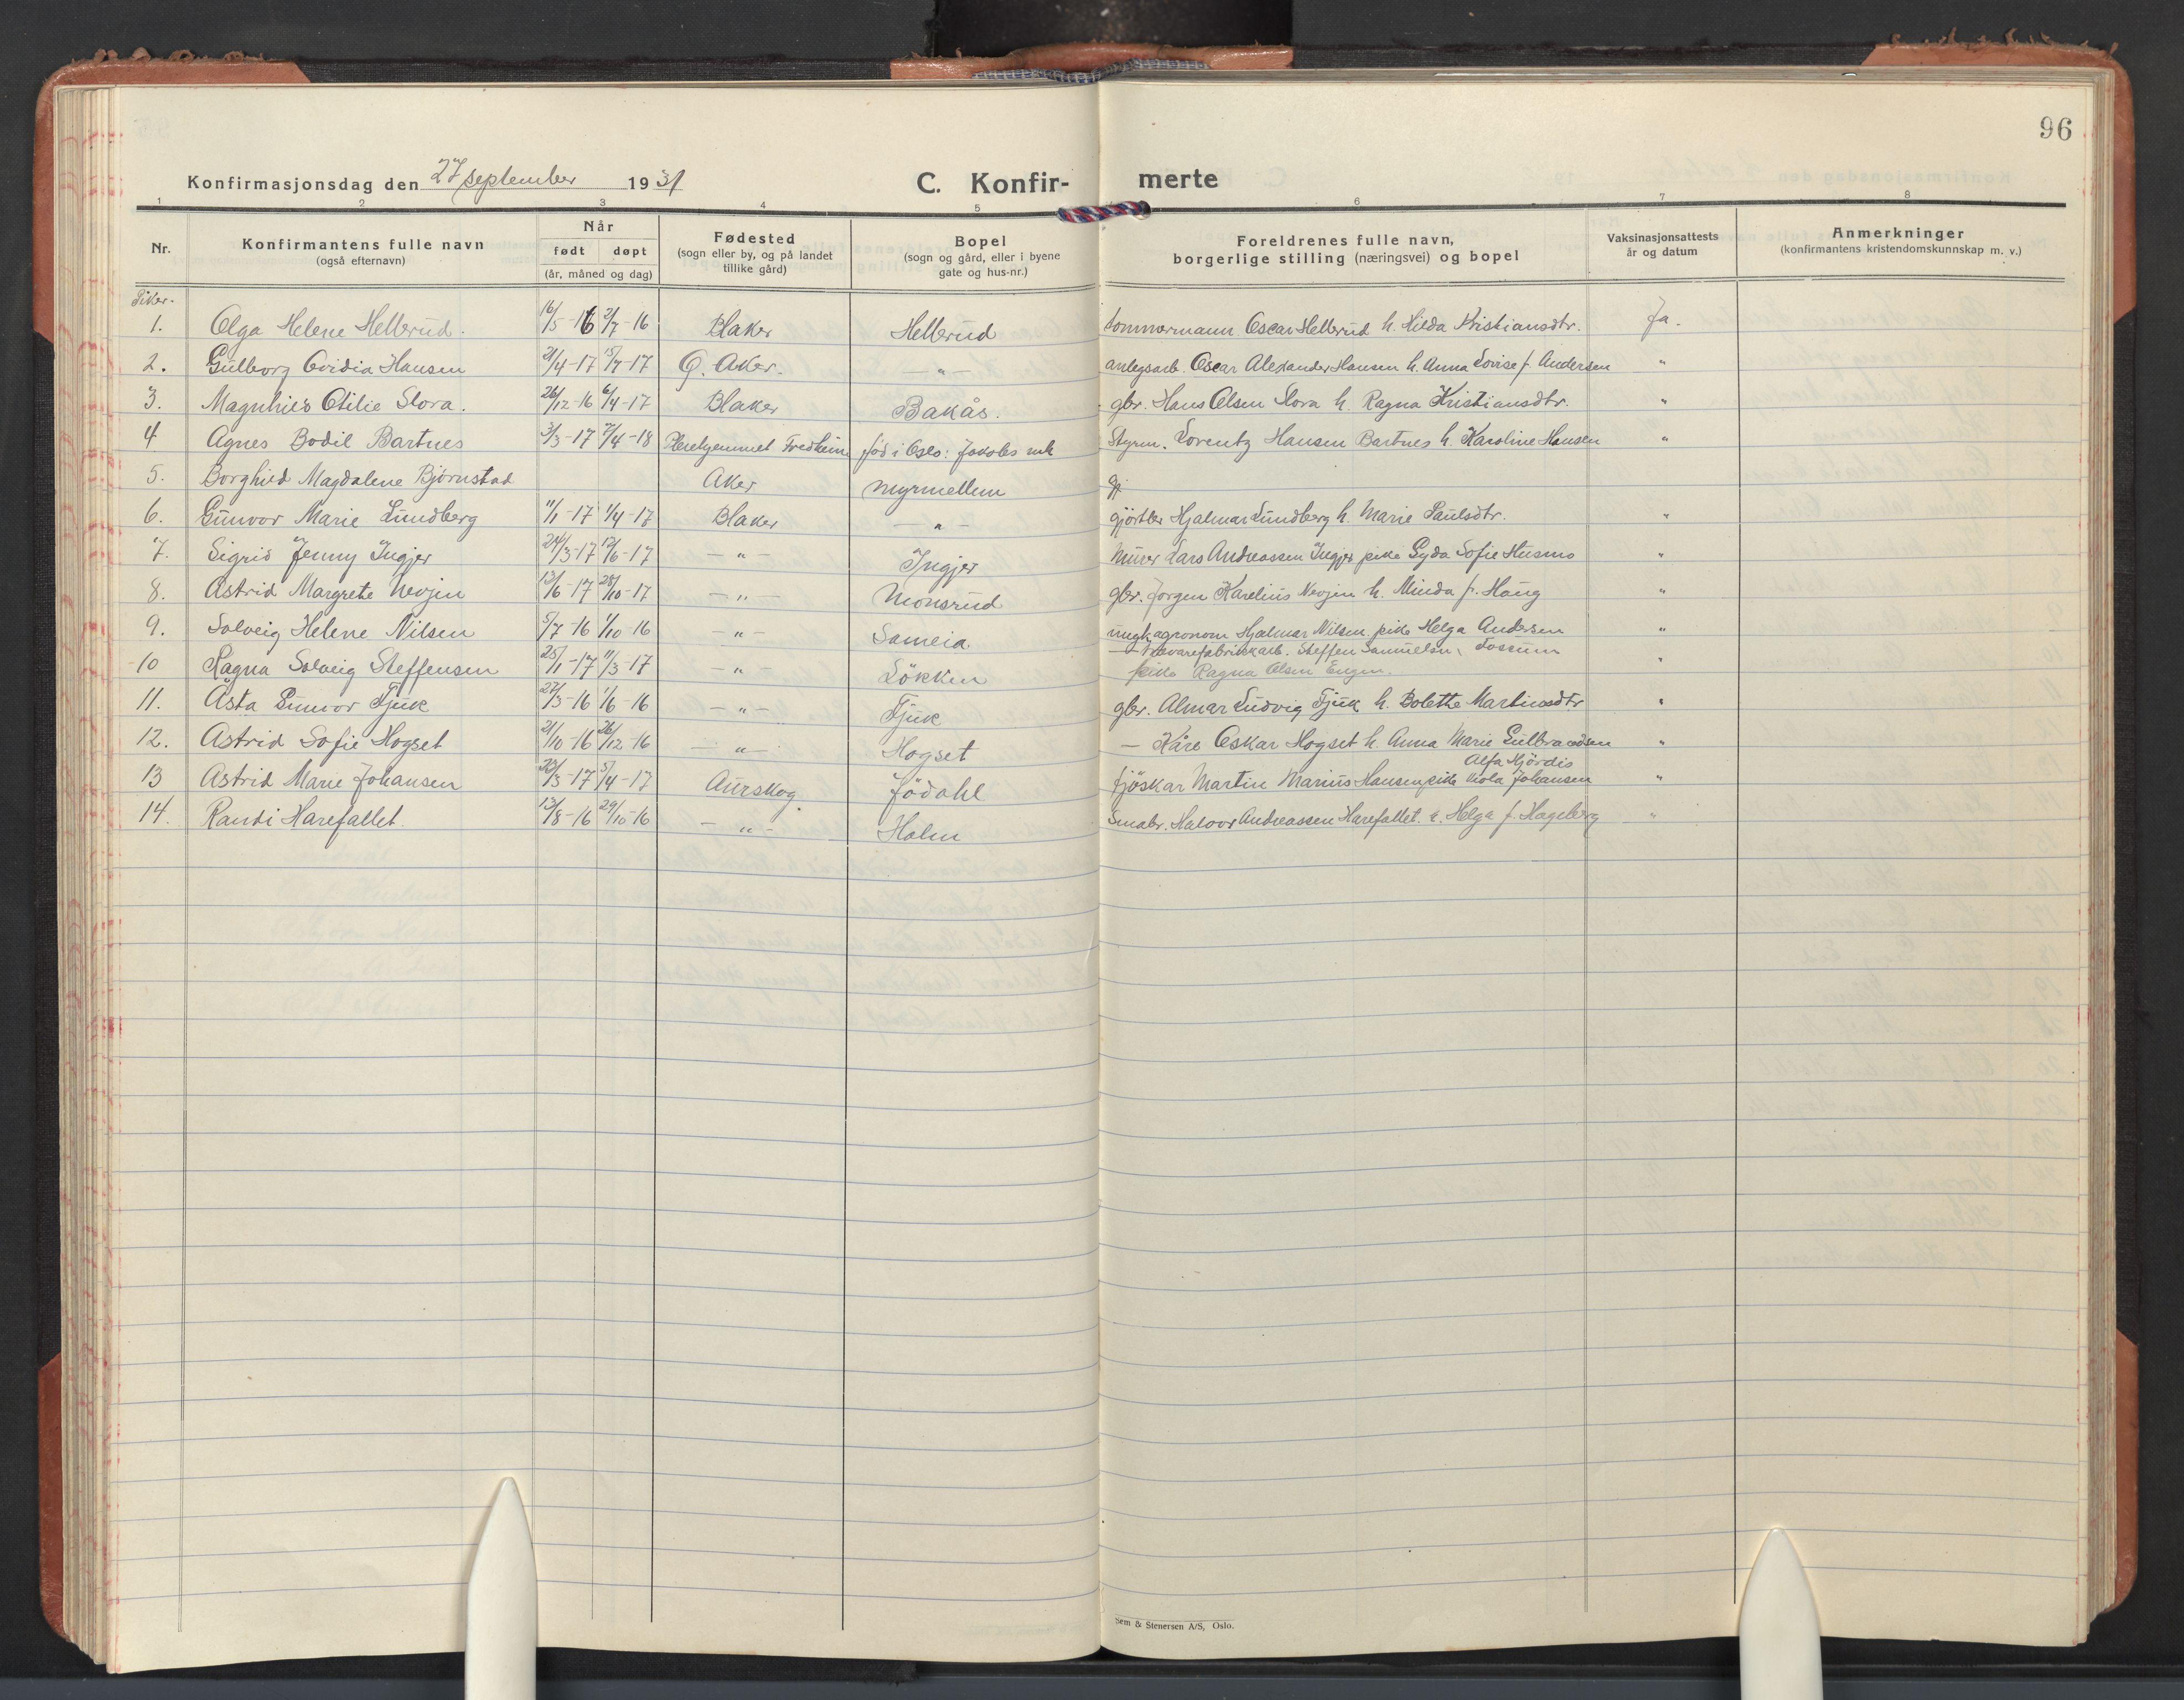 96
Konfirmasjonsdag den 27 september 1931
C. Konfir- merte
1 2 3 4 5 6 7 8
Nr.
Konfirmantens fulle navn
(også efternavn)
Når
født døpt
(år, måned og dag)
Fødested
(sogn eller by, og på landet
tillike gård)
Bopel
(sogn og gård, eller i byene
gate og hus-nr.)
Foreldrenes fulle navn,
borgerlige stilling (næringsvei) og bopel
Vaksinasjonsattests
år og datum
Anmerkninger
(konfirmantens kristendomskunnskap m. v.)
Piker.
1. Olga Helene Hellerud. 16/5-16 2/7-16 Blaker Hellerud tømmermann Oscar Hellerud h. Hilda Kristiansdtr. Ja.
2. Gulborg Ovidia Hansen 21/4-17 15/7-17 Ø. Aker. -"- anlegsarb. Oscar Alexander Hansen h. Anna Lovise f. Andersen "
3. Magnhild Otilie Slora. 26/12-16 6/4-17 Blaker Bakås. gbr. Hans Olsen Slora h. Ragna Kristiansdtr. "
4. Agnes Bodil Bartnes 3/3-17 7/4-18 Pleiehjemmet Fredheim fød i Oslo: Jakobs mh Styrm. Lorentz Hansen Bartnes h. Karoline Hansen "
5. Borghild Magdalene Bjørnstad Aker Myrmellem gj
6. Gunvor Marie Lundberg 11/1-17 1/4-17 Blaker -"- gjørtler Hjalmar Lundberg h. Marie Paulsdtr. "
7. Sigrid Jenny Ingjer 24/3-17 12/6-17 -"- Ingjer Murer Lars Andreassen Ingjer pike Gyda Sofie Husmo "
8. Astrid Margrete Nevjen 13/6-17 28/10-17 -"- Monsrud gbr. Jørgen Karelius Nevjen h. Minda f. Haug "
9. Solveig Helene Nilsen 5/7-16 1/10-16 -"- Sameia ungk. agronom Hjalmar Nilsen. pike Helga Andersen "
10 Ragna Solveig Steffensen 25/1-17 11/3-17 -"- Løkken - Trevarefabrikkarb. Steffen Samuelsen, Fossum "
pike Ragna Olsen Engen.
11. Åsta Gunvor Tjuk 27/3-16 1/6-16 -"- Tjuk gbr. Almar Ludvig Tjuk h. Bolette Martinsdtr "
12. Astrid Sofie Hogset 21/10-16 26/12-16 -"- Hogset - Kåre Oskar Hogset h. Anna Marie Gulbrandsen "
Alfa Hjørdis
13 Astrid Marie Johansen 23/3-17 5/4-17 Aurskog Jødahl fjøskar Martin Marius Hansen pike Viola Johansen "
14. Randi Harefallet. 13/8-16 29/10-16 -"- Holm Småbr. Halvor Andreassen Harefallet. h. Helga f. Hageberg "
Sem & Stenersen A/S, Oslo.